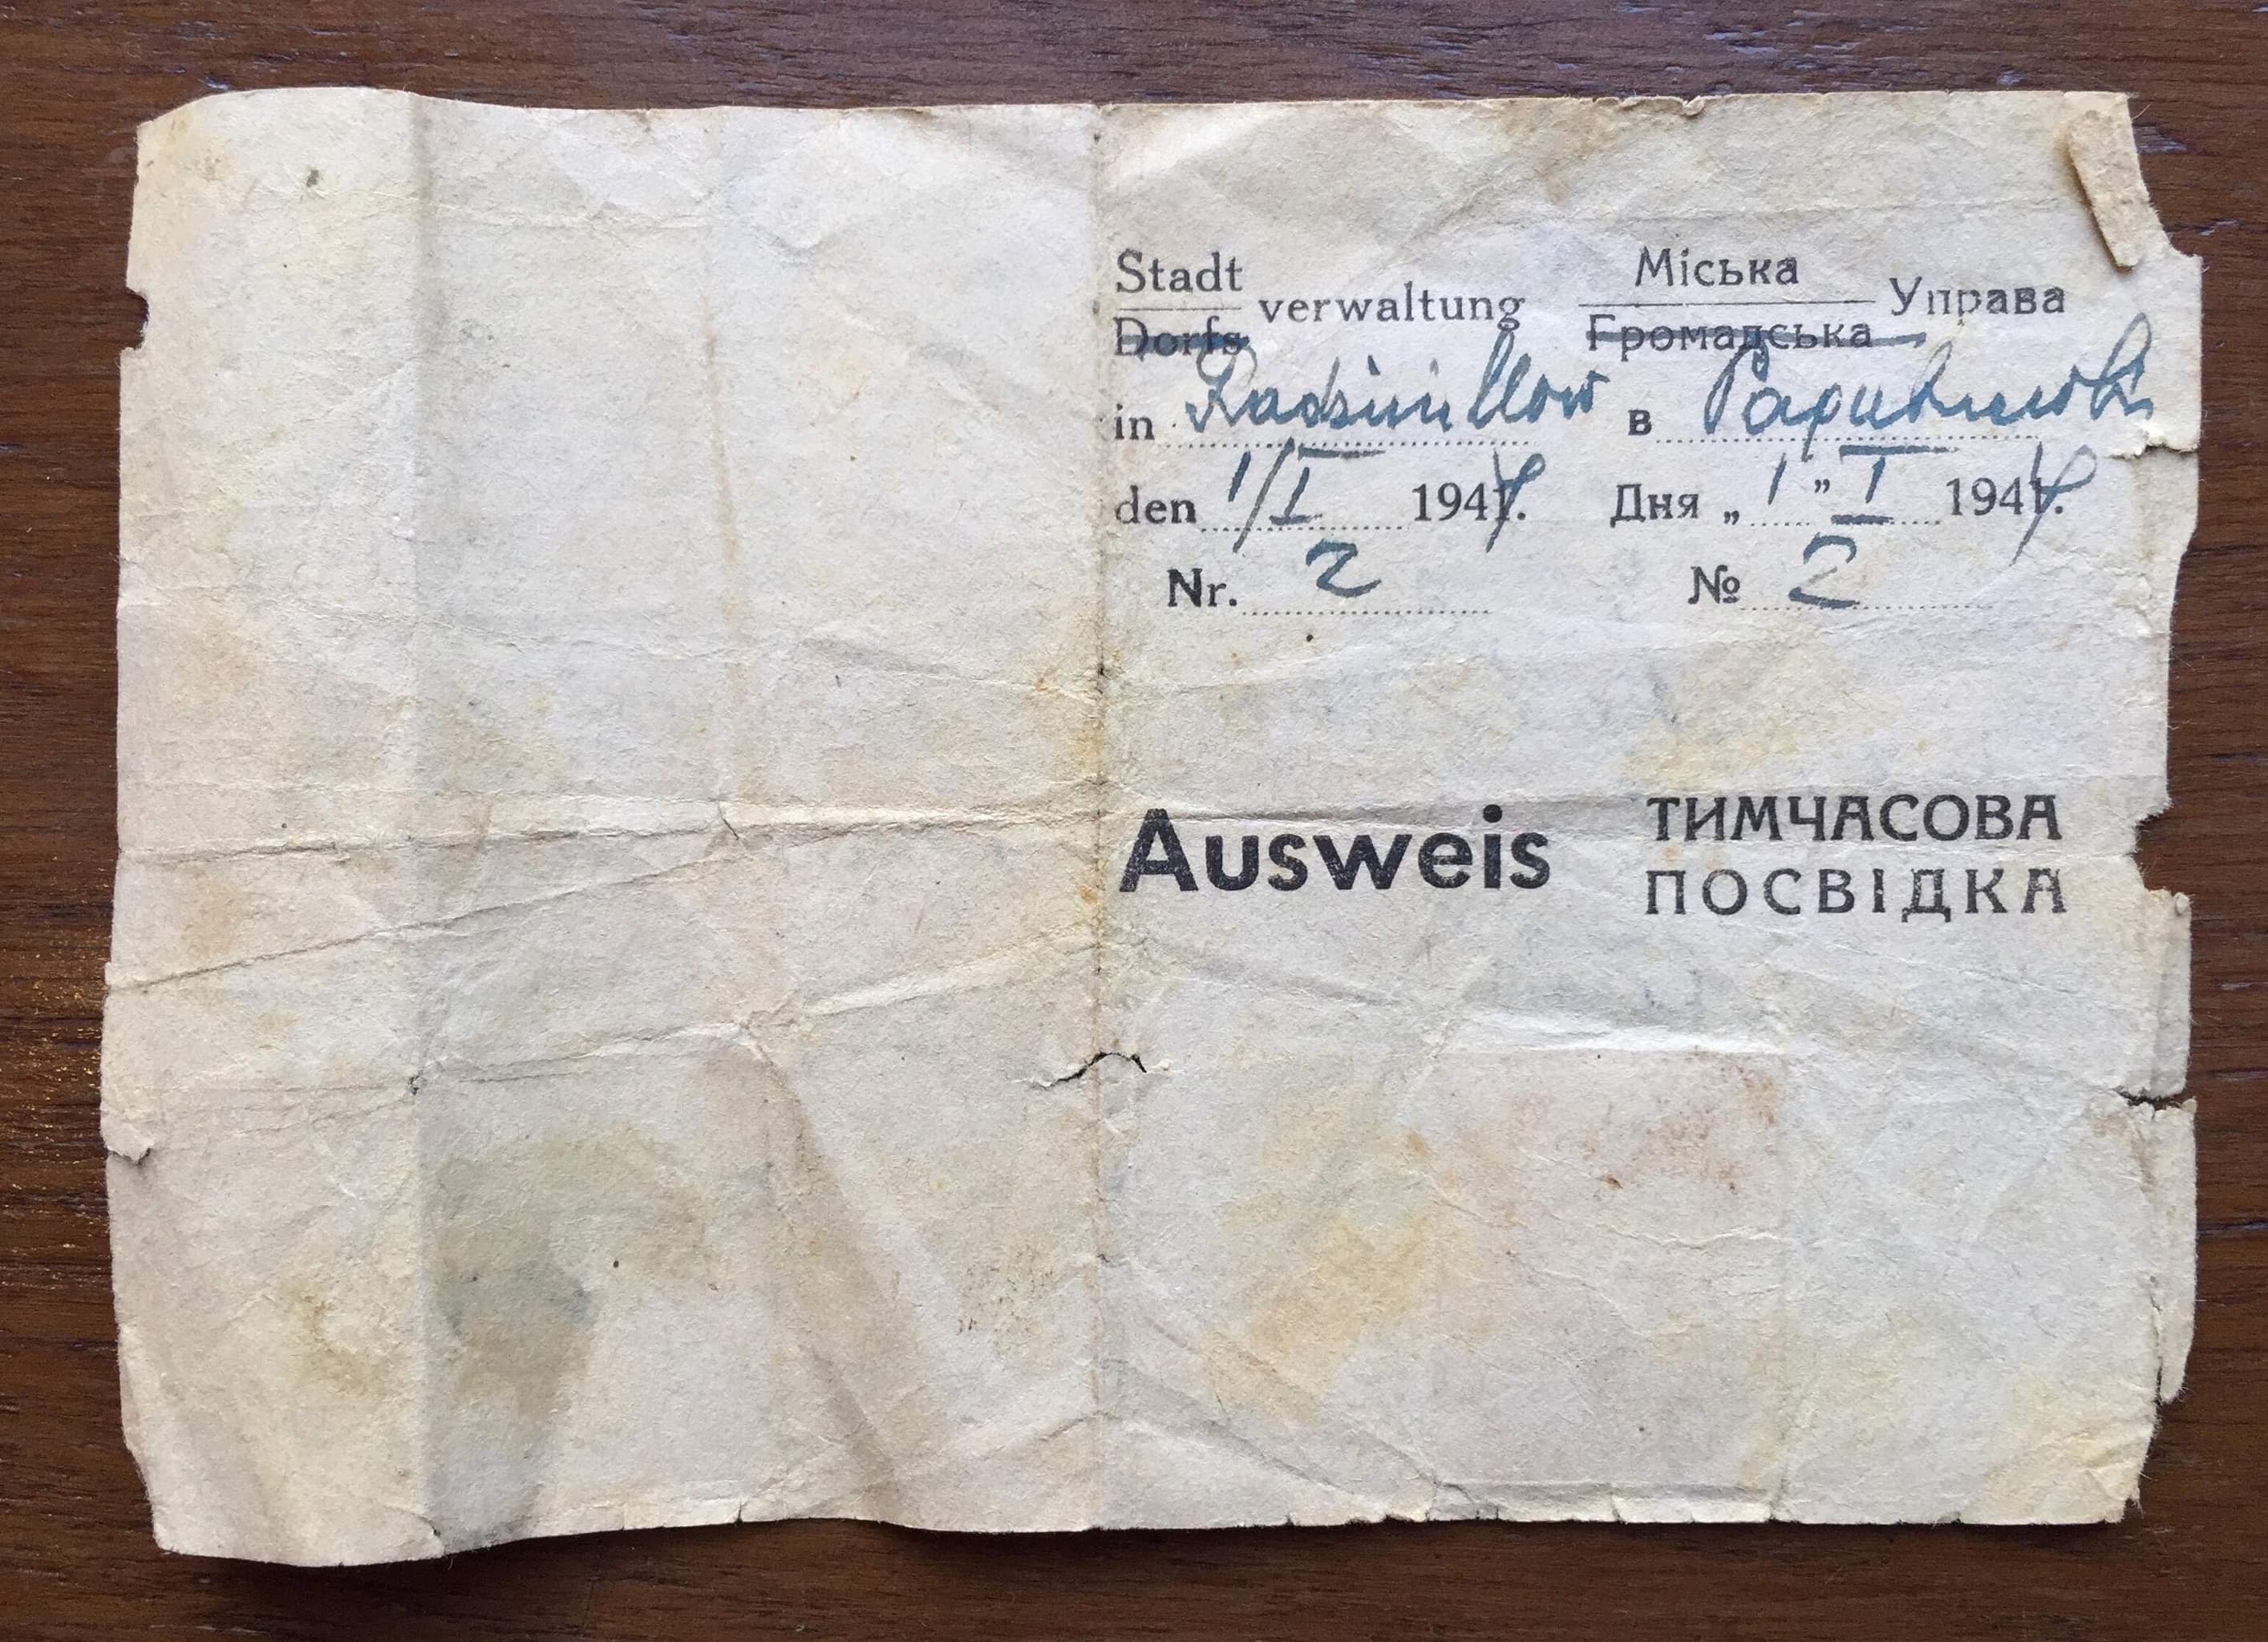 Stadt
Dorfs
verwaltung
in Radsiwillow
den 1/I 1944.
Nr. 2
Міська
Громадська
Управа
в Радивилові
Дня „1" I 1944.
№ 2
Ausweis
ТИМЧАСОВА
ПОСВІДКА